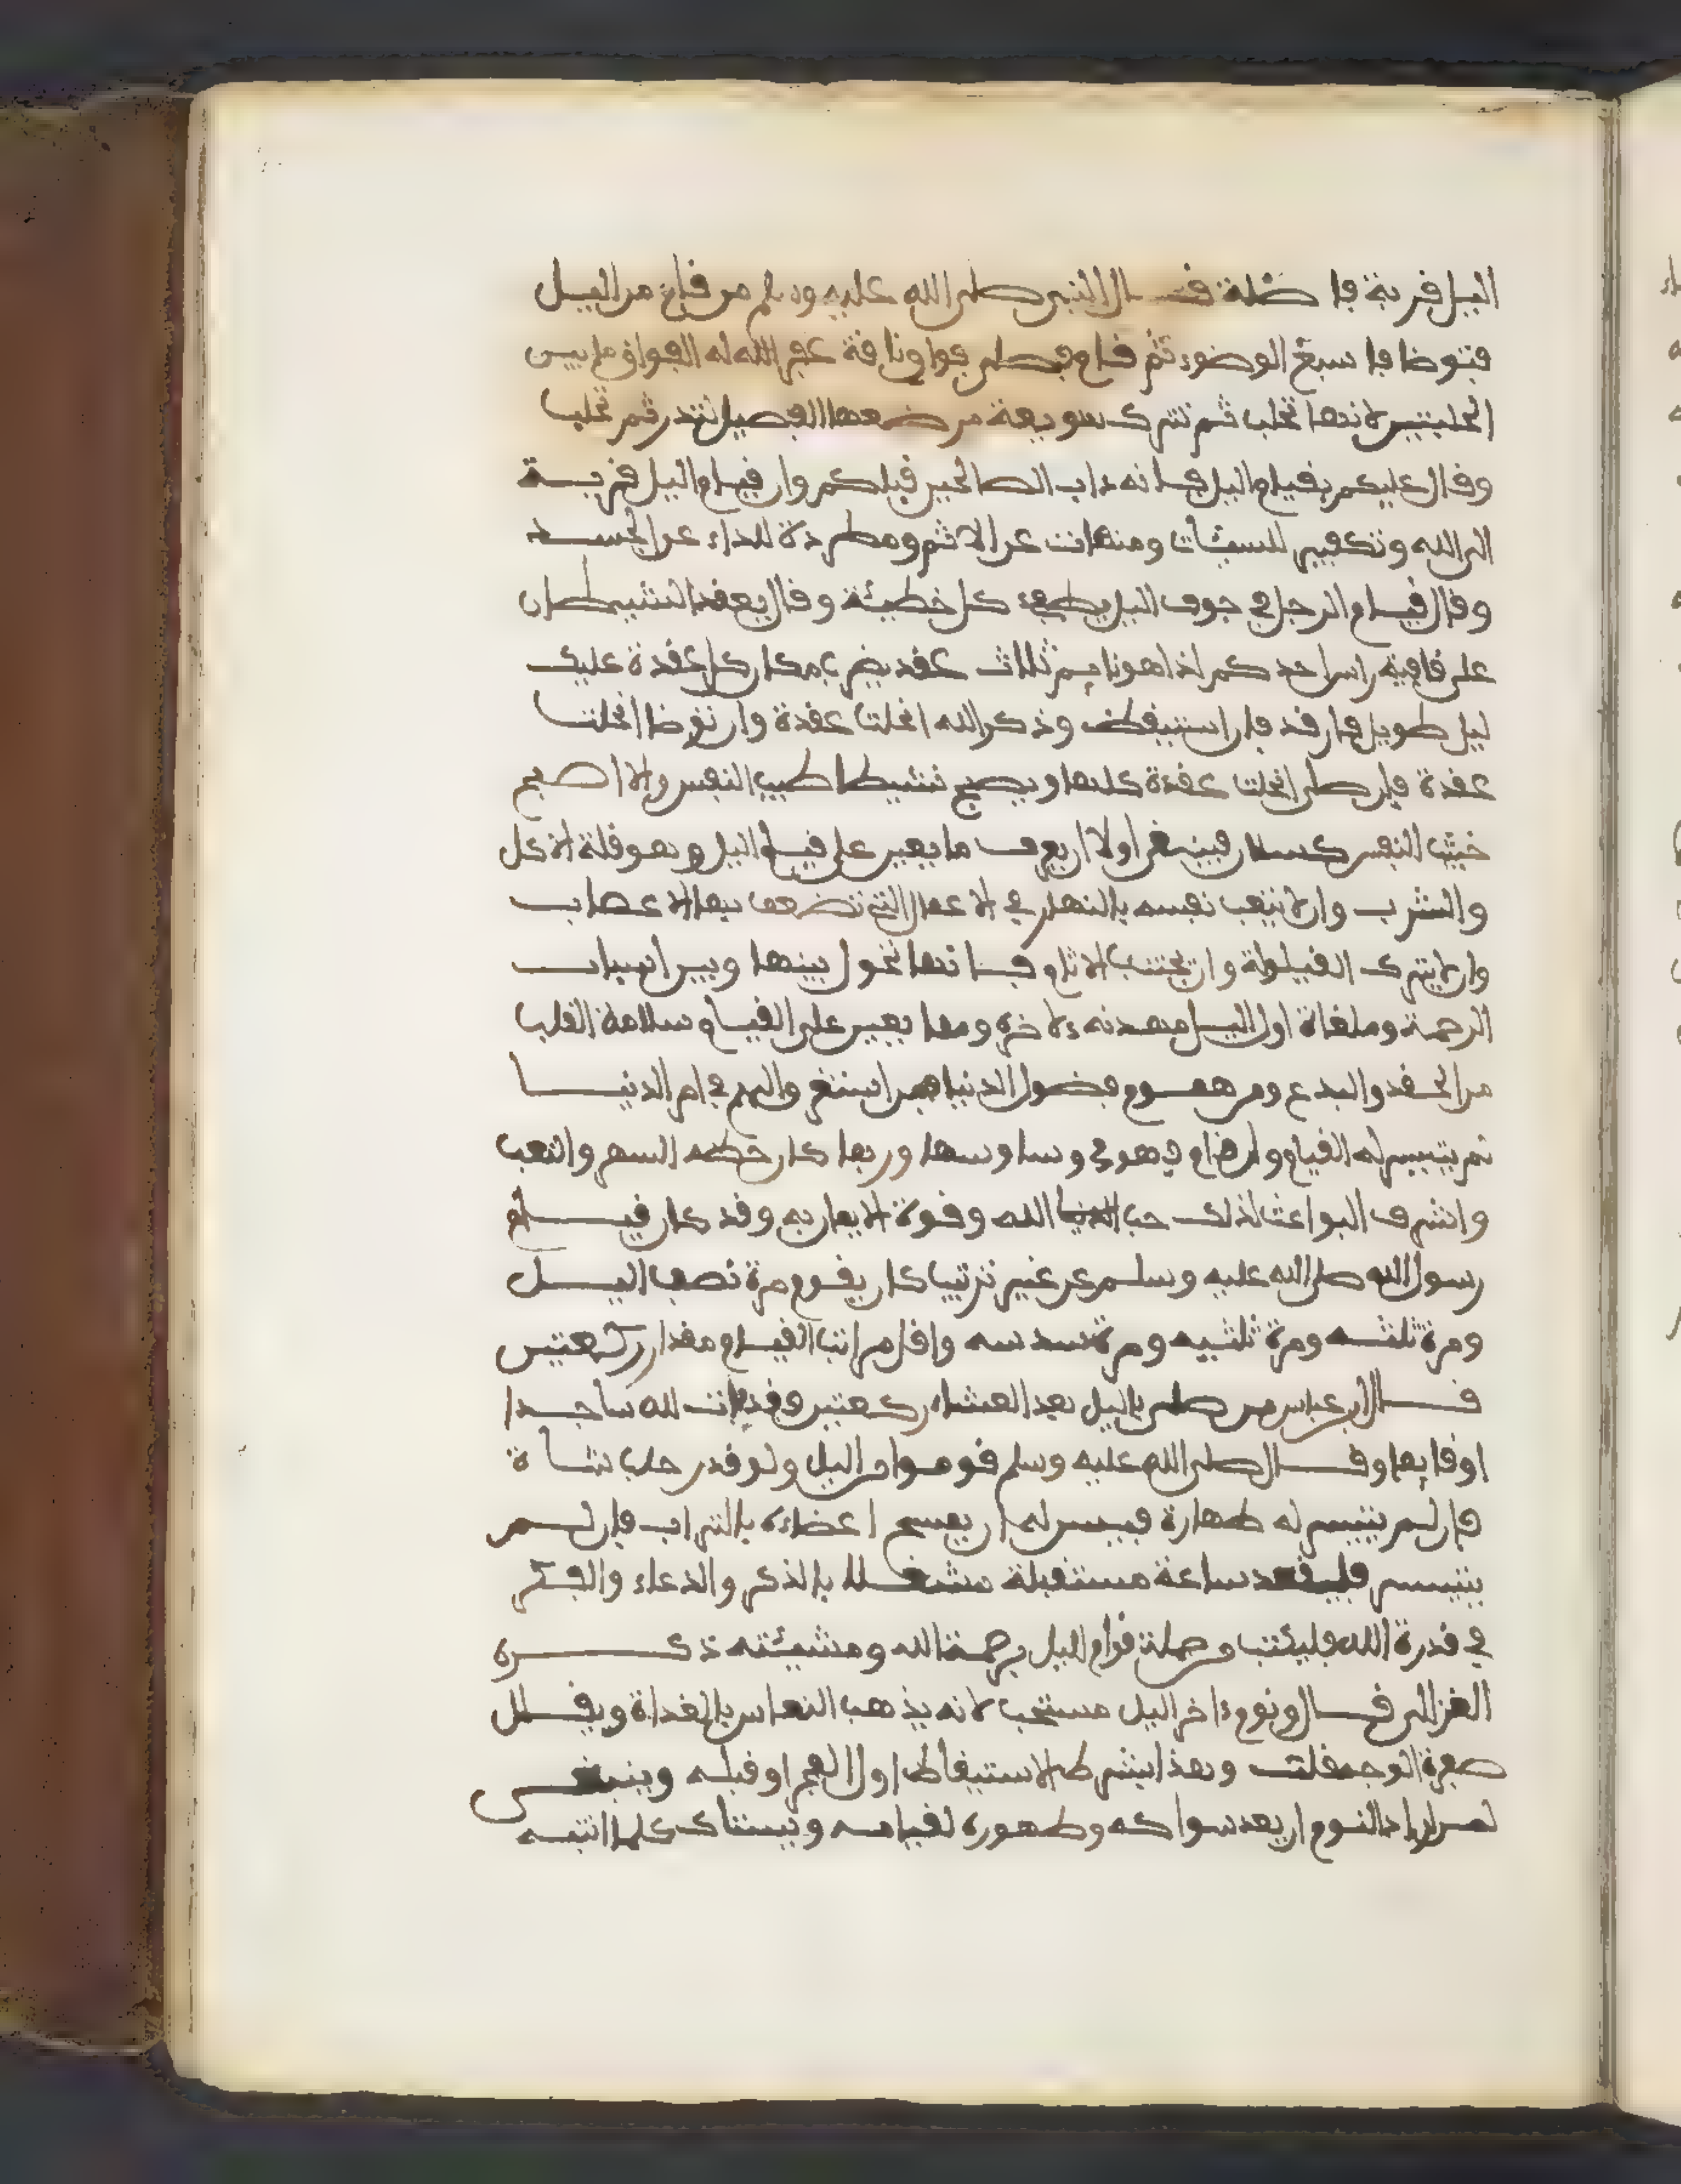 اليل قربة فاضلة قال النبي صلى الله عليه وسلم من قام من اليل
فتوضا فاسبغ الوضوء ثم قام فصلى فواق ناقة غفر الله له الفواق ما بين
الحلبتين لانها تحلب ثم تترك سويعة يرضعها الفصيل لتدر ثم تحلب
وقال عليكم بقيام اليل فانه داب الصالحين قبلكم وان قيام اليل قربة
الى الله وتكفير للسيئات ومنهات عن الاثم ومطردة للداء عن الجسد
وقال قيام الرجل في جوف اليل يطفىء كل خطيئة وقال يعقد الشيطان
على قافية راس احدكم اذا هو نايم ثلاث عقد يضرب مكان كل عقدة عليك
ليل طويل فارقد فان استيقظ وذكر الله انحلت عقدة وان توضا انحلت
عقدة فان صلى انحلت عقدة كلها ويصبح نشيطا طيب النفس والا اصبح
خبيث النفس كسلان فينبغى اولا ان يعرف ما يعين على قيام اليل وهو قلة الاكل
والشرب وان لا يتعب نفسه بالنهار في الاعمال التي تضعف بها الاعصاب
وان لا يترك القيلولة وان يجتنب الاثام فانها تحول بينها وبين اسباب
الرحمة وملغاة اول اليل مهدنة ءلاخره ومما يعين على القيام سلامة القلب
من الحقد والبدع ومن هموم فضول الدنيا فمن استغرق الهم في امر الدنيا
لم يتيسر له القيام وان قام فهو في وساوسها وربما كان حظه السهر والتعب
واشرف البواعث لذلك حب الله وقوة الايمان به وقد كان قيام
رسول الله صلى الله عليه وسلم عن غير ترتيب كان يقوم مرة نصف اليل
ومرة ثلثه ومرة ثلثيه ومرة سدسه واقل مراتب القيام مقدار ركعتين
قال ابن عباس من صلى باليل بعد العشاء ركعتين فقد بات لله ساجدا
او قايما وقال صلى الله عليه وسلم قوموا من اليل ولو قدر حلب شاة
فان لم يتيسر له طهارة فييسر له ان يمسح اعضاءه بالتراب فان لم
يتيسر فليقعد ساعة مستقبلة مشغلا بالذكر والدعاء والفكر
في قدرة الله فليكتب من جملة قوام اليل برحمة الله ومشيئته ذكره
الغزالى قال ونوم ءاخر اليل مستحب لانه يذهب النعاس بالغداة ويقلل
صفرة الوجه قلت وهذا بشرط الاستيقاظ اول الفجر او قبله وينبغي
لمن اراد النوم ان يعد سواكه وطهوره لقيامه ويستاك كلما انتبه